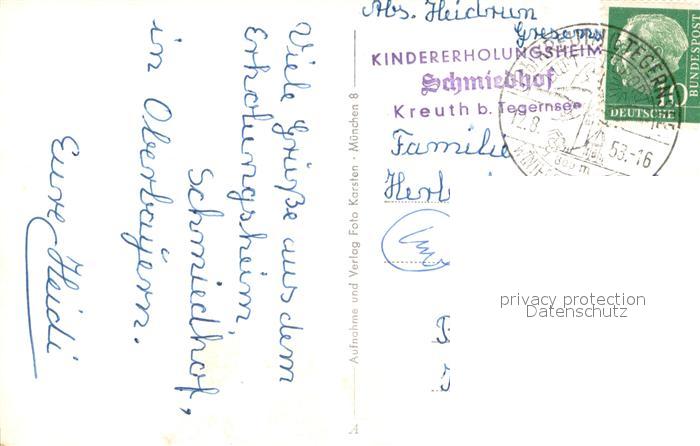 Viele Grüße aus dem
Erholungsheim,
Schmiedhof,
in Oberbayern.
Eure Heidi
Aufnahme und Verlag Foto Karsten · München 8
A
Abs. Heidrun
KINDERERHOLUNGSHEIM
Schmiedhof
Kreuth b. Tegernsee
Familie
DEUTSCHE
BUNDESPOST
10
12.8.
58.-16
privacy protection
Datenschutz